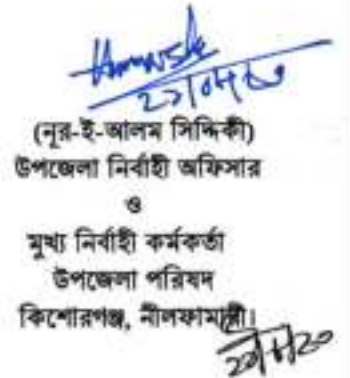 (নূর-ই-আলম সিদ্দিকী)
উপজেলা নির্বাহী অফিসার
ও
মুখ্য নির্বাহী কর্মকর্তা
উপজেলা পরিষদ
কিশোরগঞ্জ, নীলফামারী।